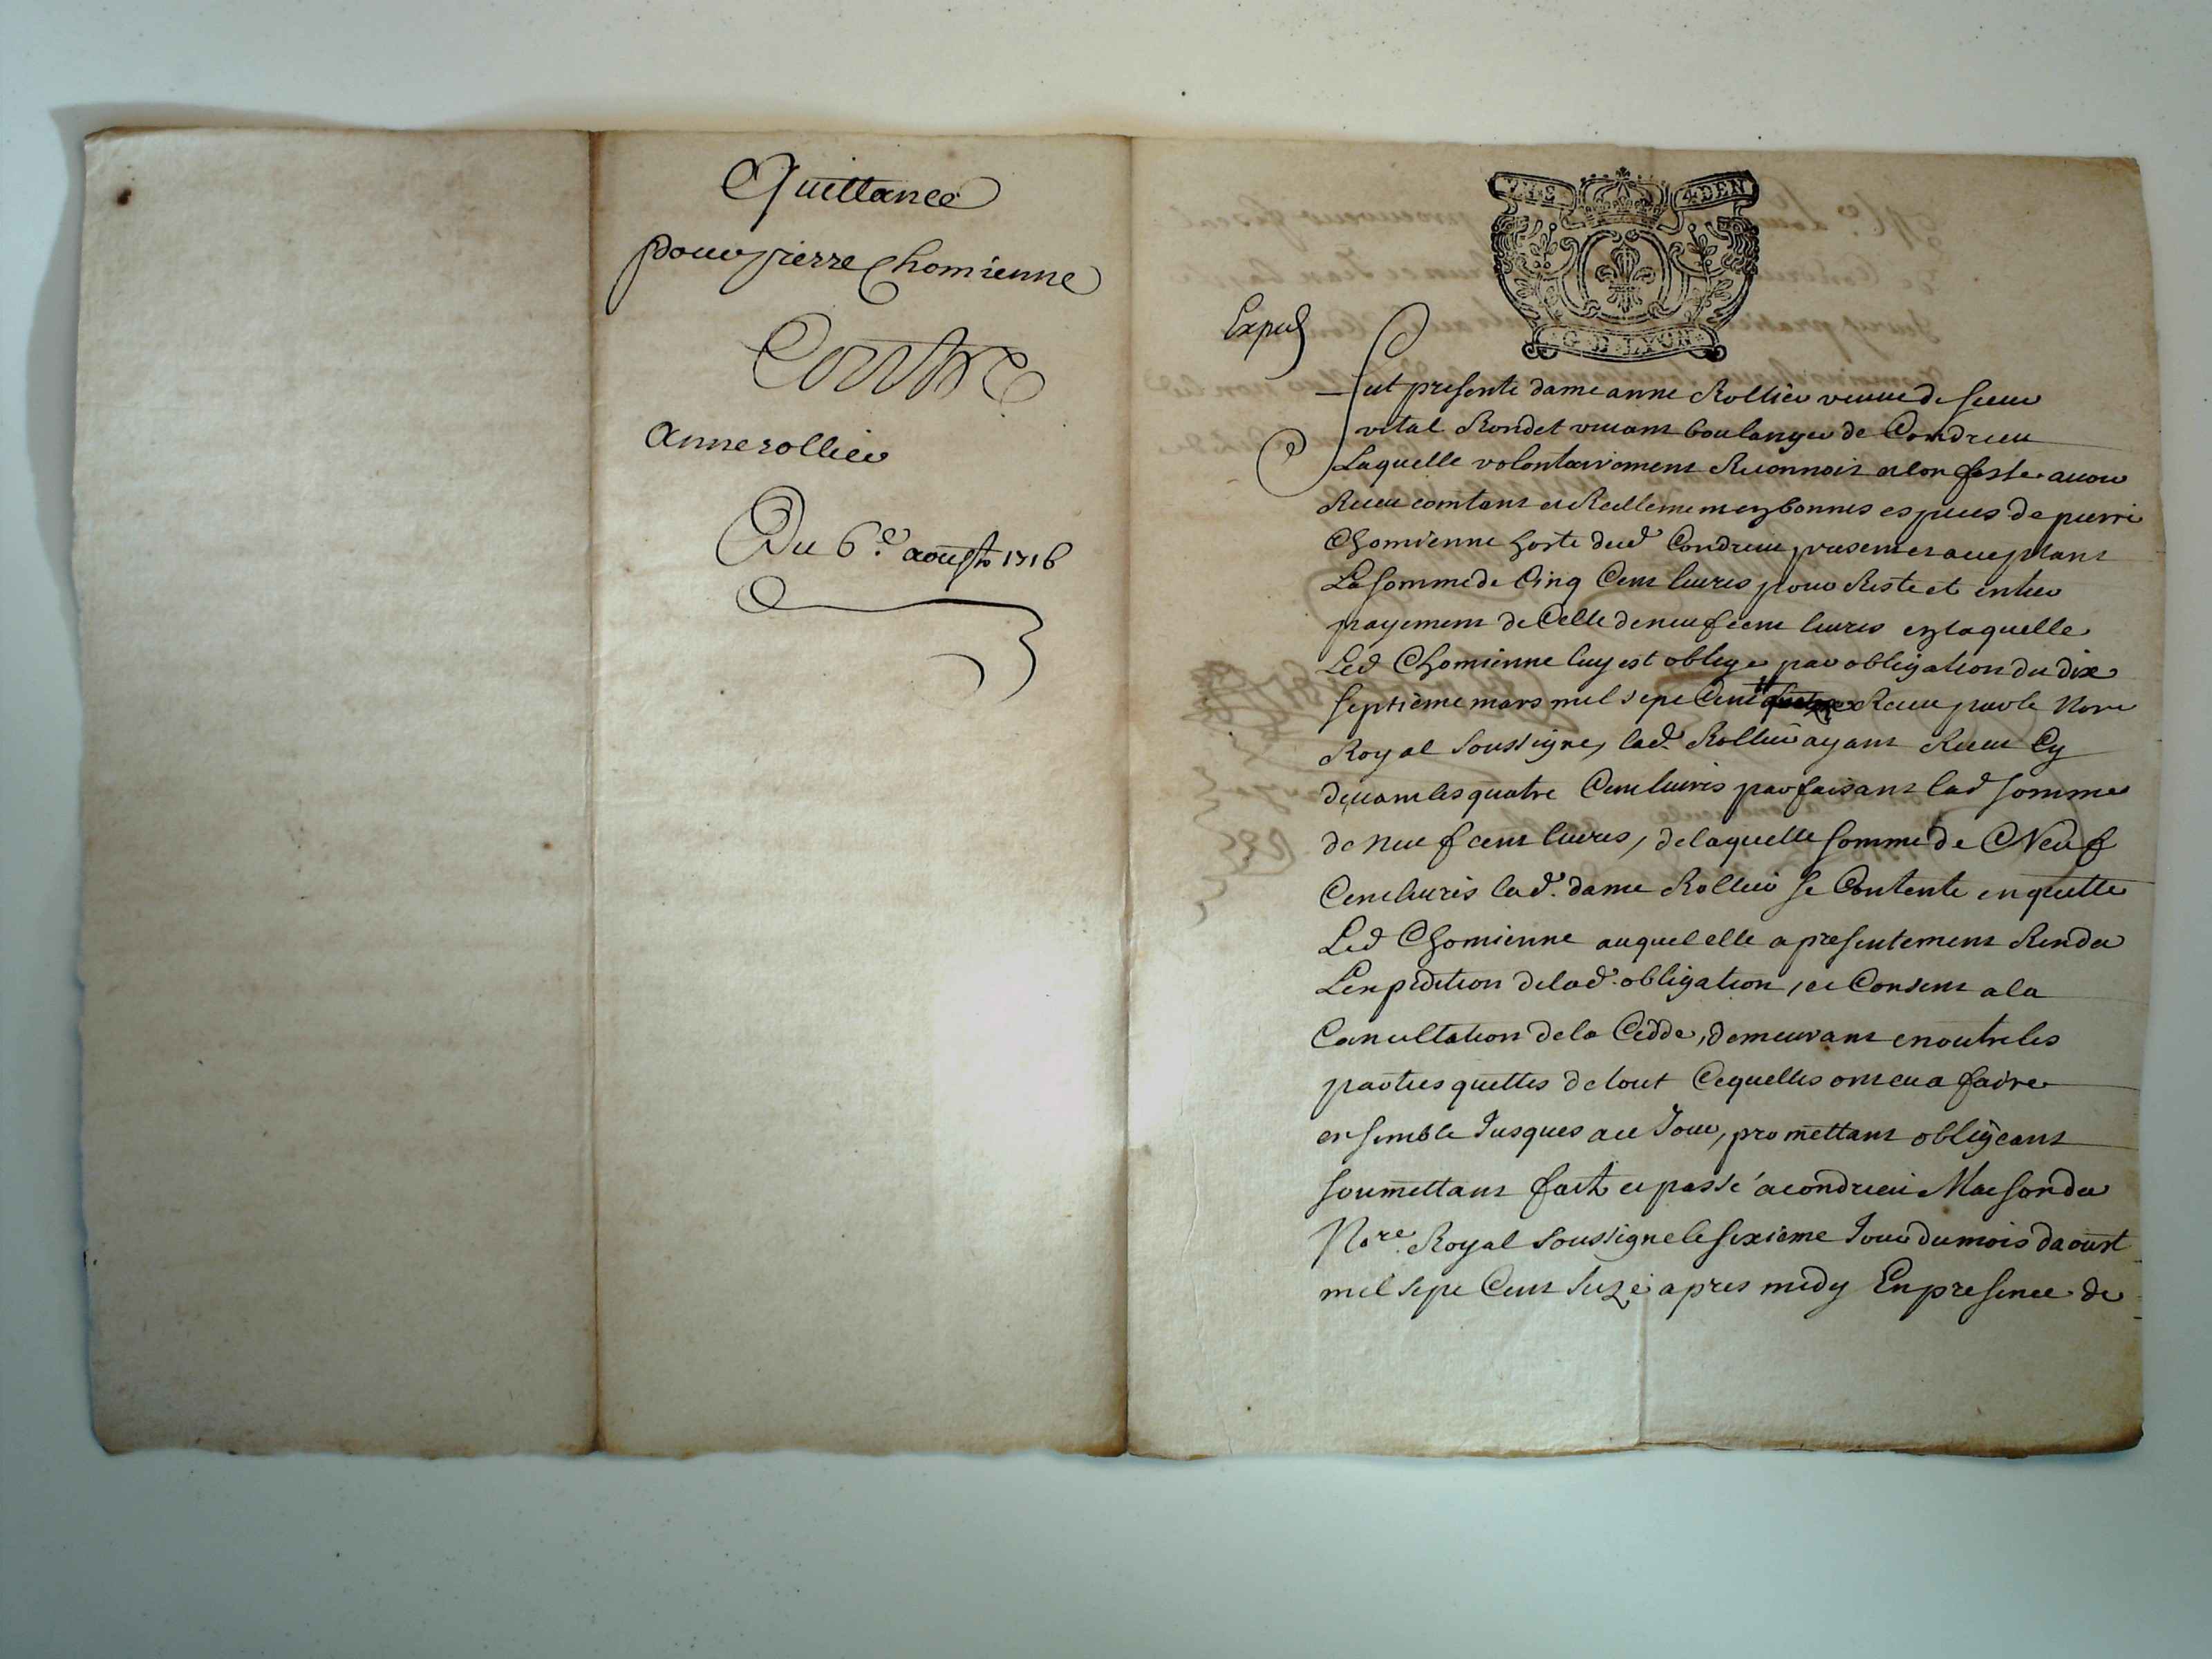 Quittance
pour pierre Chomienne
Contre
anne rollier
Du 6.e aoust 1716
4 DEN
G D LYON
Exped
fut presente dame anne Rollier veuue de sieur
vital Rondet viuant boulanger de Condrieu
Laquelle volontairement Reconnoit et confesse auoir
Receu comtant et Reellement en bonnes especes de pierre
Chomienne hoste dud Condrieu present et acceptant
La somme de Cinq Cent liures pour Reste et entier
payement de Celle de neuf cent liures en laquelle
Led Chomienne luy est oblige par obligation du dix
septieme mars mil sept Cent Receu par le Nore
Royal soussigne, lad. Rollier ayant Receu Cy
deuant les quatre Cent liures parfaisant lad somme
de neuf cent liures, de laquelle somme de Neuf
Cent liures lad. dame Rollier se Contente en quitte
Led Chomienne auquel elle a presentement Rendu
Lexpedition de lad. obligation, et Consent a la
Cancellation de la Cedde, demeurant en outre les
parties quittes de tout Cequelles ont eu a faire
ensemble Jusques a ce Jour, promettant obligeant
soumettant fait et passé a condrieu Maison du
No.re Royal soussigne le sixieme Jour du mois daoust
mil sept Cent seize apres midy En presence de